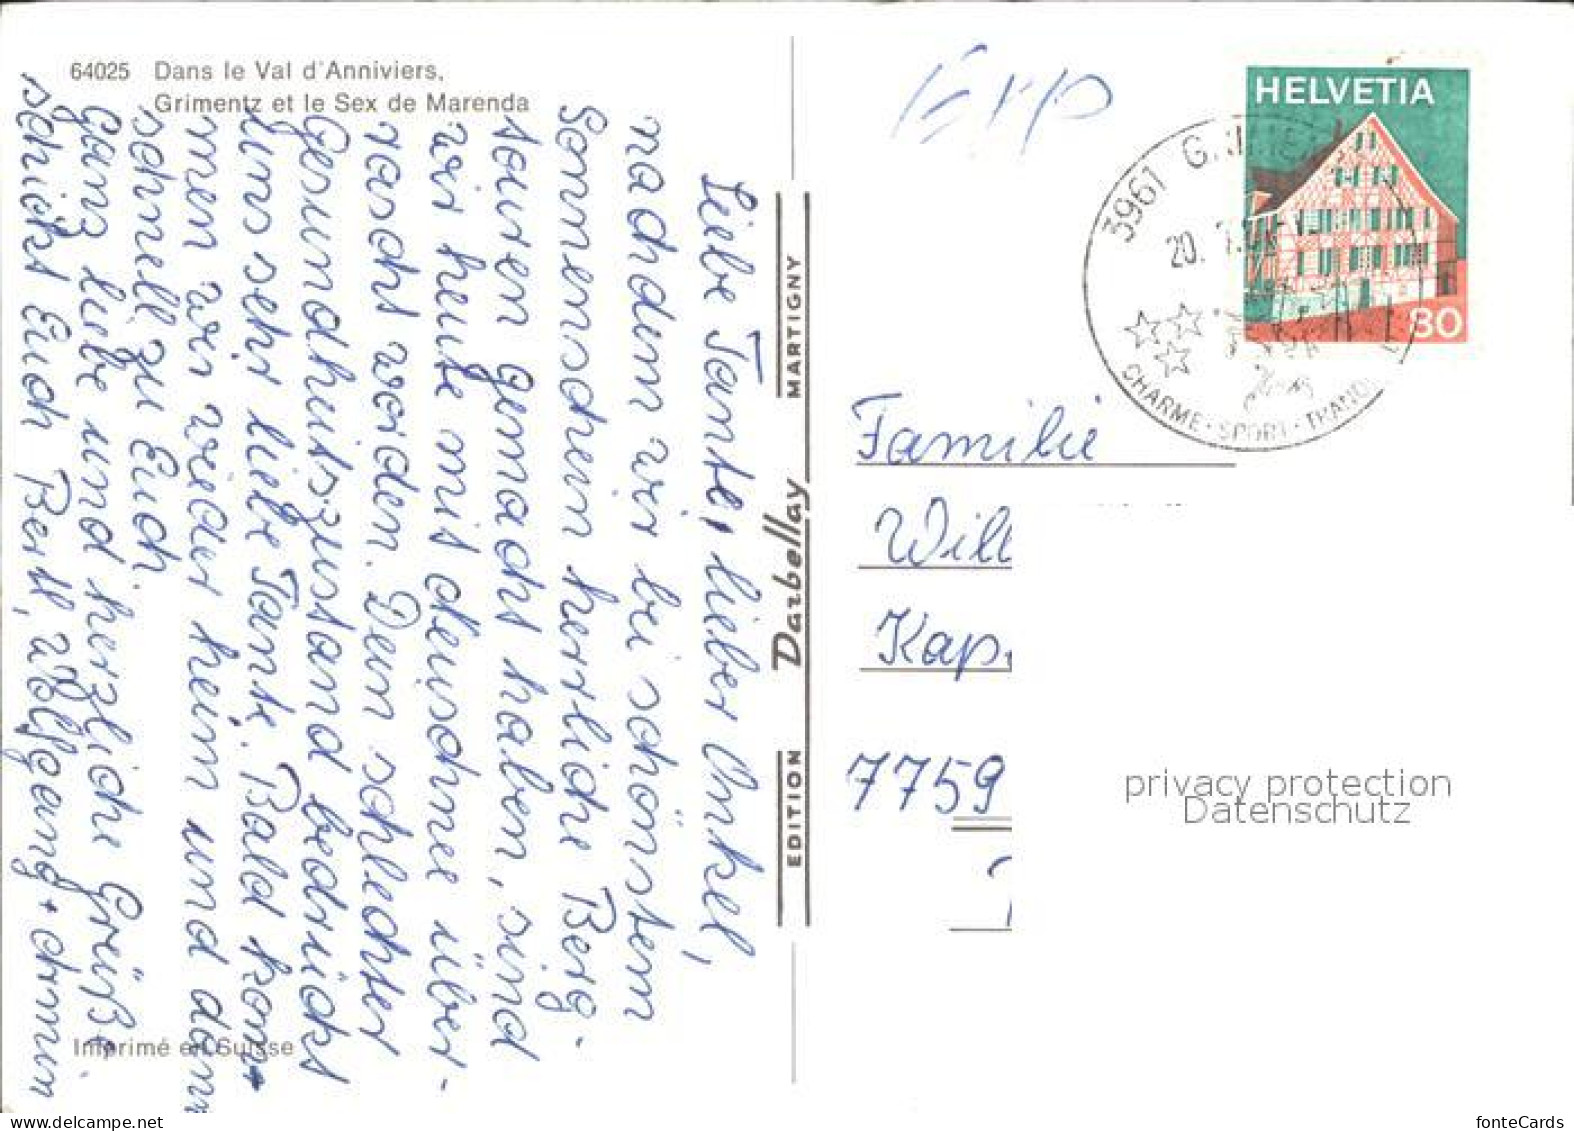 64025 Dans le Val d'Anniviers,
Grimentz et le Sex de Marenda
Liebe Tante, lieber Onkel,
nachdem wir bei schönstem
Sonnenschein herrliche Berg-
touren gemacht haben, sind
wir heute mis der Schnee über-
rascht worden. Dein schlechter
Gesundheitszustand bedrückt
uns sehr liebe Tante. Bald kom-
men wir wieder heim und dann
schnell zu Euch.
Ganz liebe und herzliche Grüße
schickt Euch Bertl, Wolfgang + Armin
Imprimé en Suisse
EDITION Darbellay MARTIGNY
Erp
HELVETIA
80
3961
20.
CHARME · SPORT
Familie
Kap.
7759
privacy protection
Datenschutz
delcampe.net
fonteCards